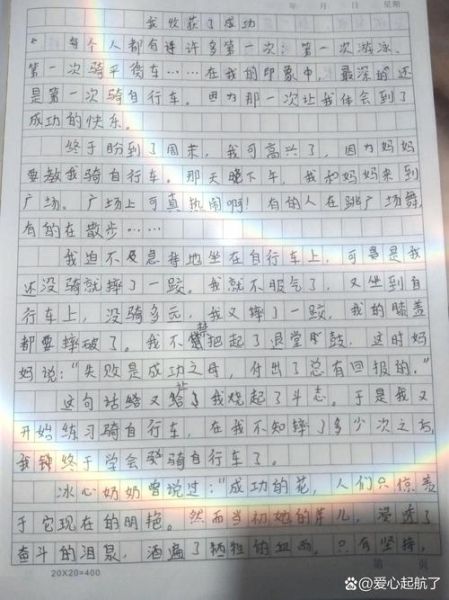 年 月 日 星期
我收获了成功
每个人都有许许多多第一次:第一次游泳、
第一次骑平衡车……在我的印象中,最深的还
是第一次骑自行车。因为那一次让我体会到了
成功的快乐。
终于盼到了周末,我可高兴了,因为妈妈
要教我骑自行车。那天晚下午,我和妈妈来到
广场。广场上可真热闹啊!有的人在跳广场舞,
有的在散步……
我迫不及待地坐在自行车上,可是我
还没骑就摔了一跤。我就不服气了,又坐到自
行车上,没骑多元,我又摔了一跤,我的膝盖
都要摔破了。我不禁把起了退堂鼓,这时妈
妈说:“失败是成功之母,付出了总有回报的。”
这句话给又给我燃起了斗志。于是我又
开始练习骑自行车,在我不知摔了多少次之后,
我终于学会骑自行车了。
冰心奶奶曾说过:“成功的花,人们只惊羡
于它现在的明艳。然而当初她的芽儿,浸透了
奋斗的泪泉,洒遍了牺牲的血雨。只有坚持,
20X20=400
第 页
@爱心起航了